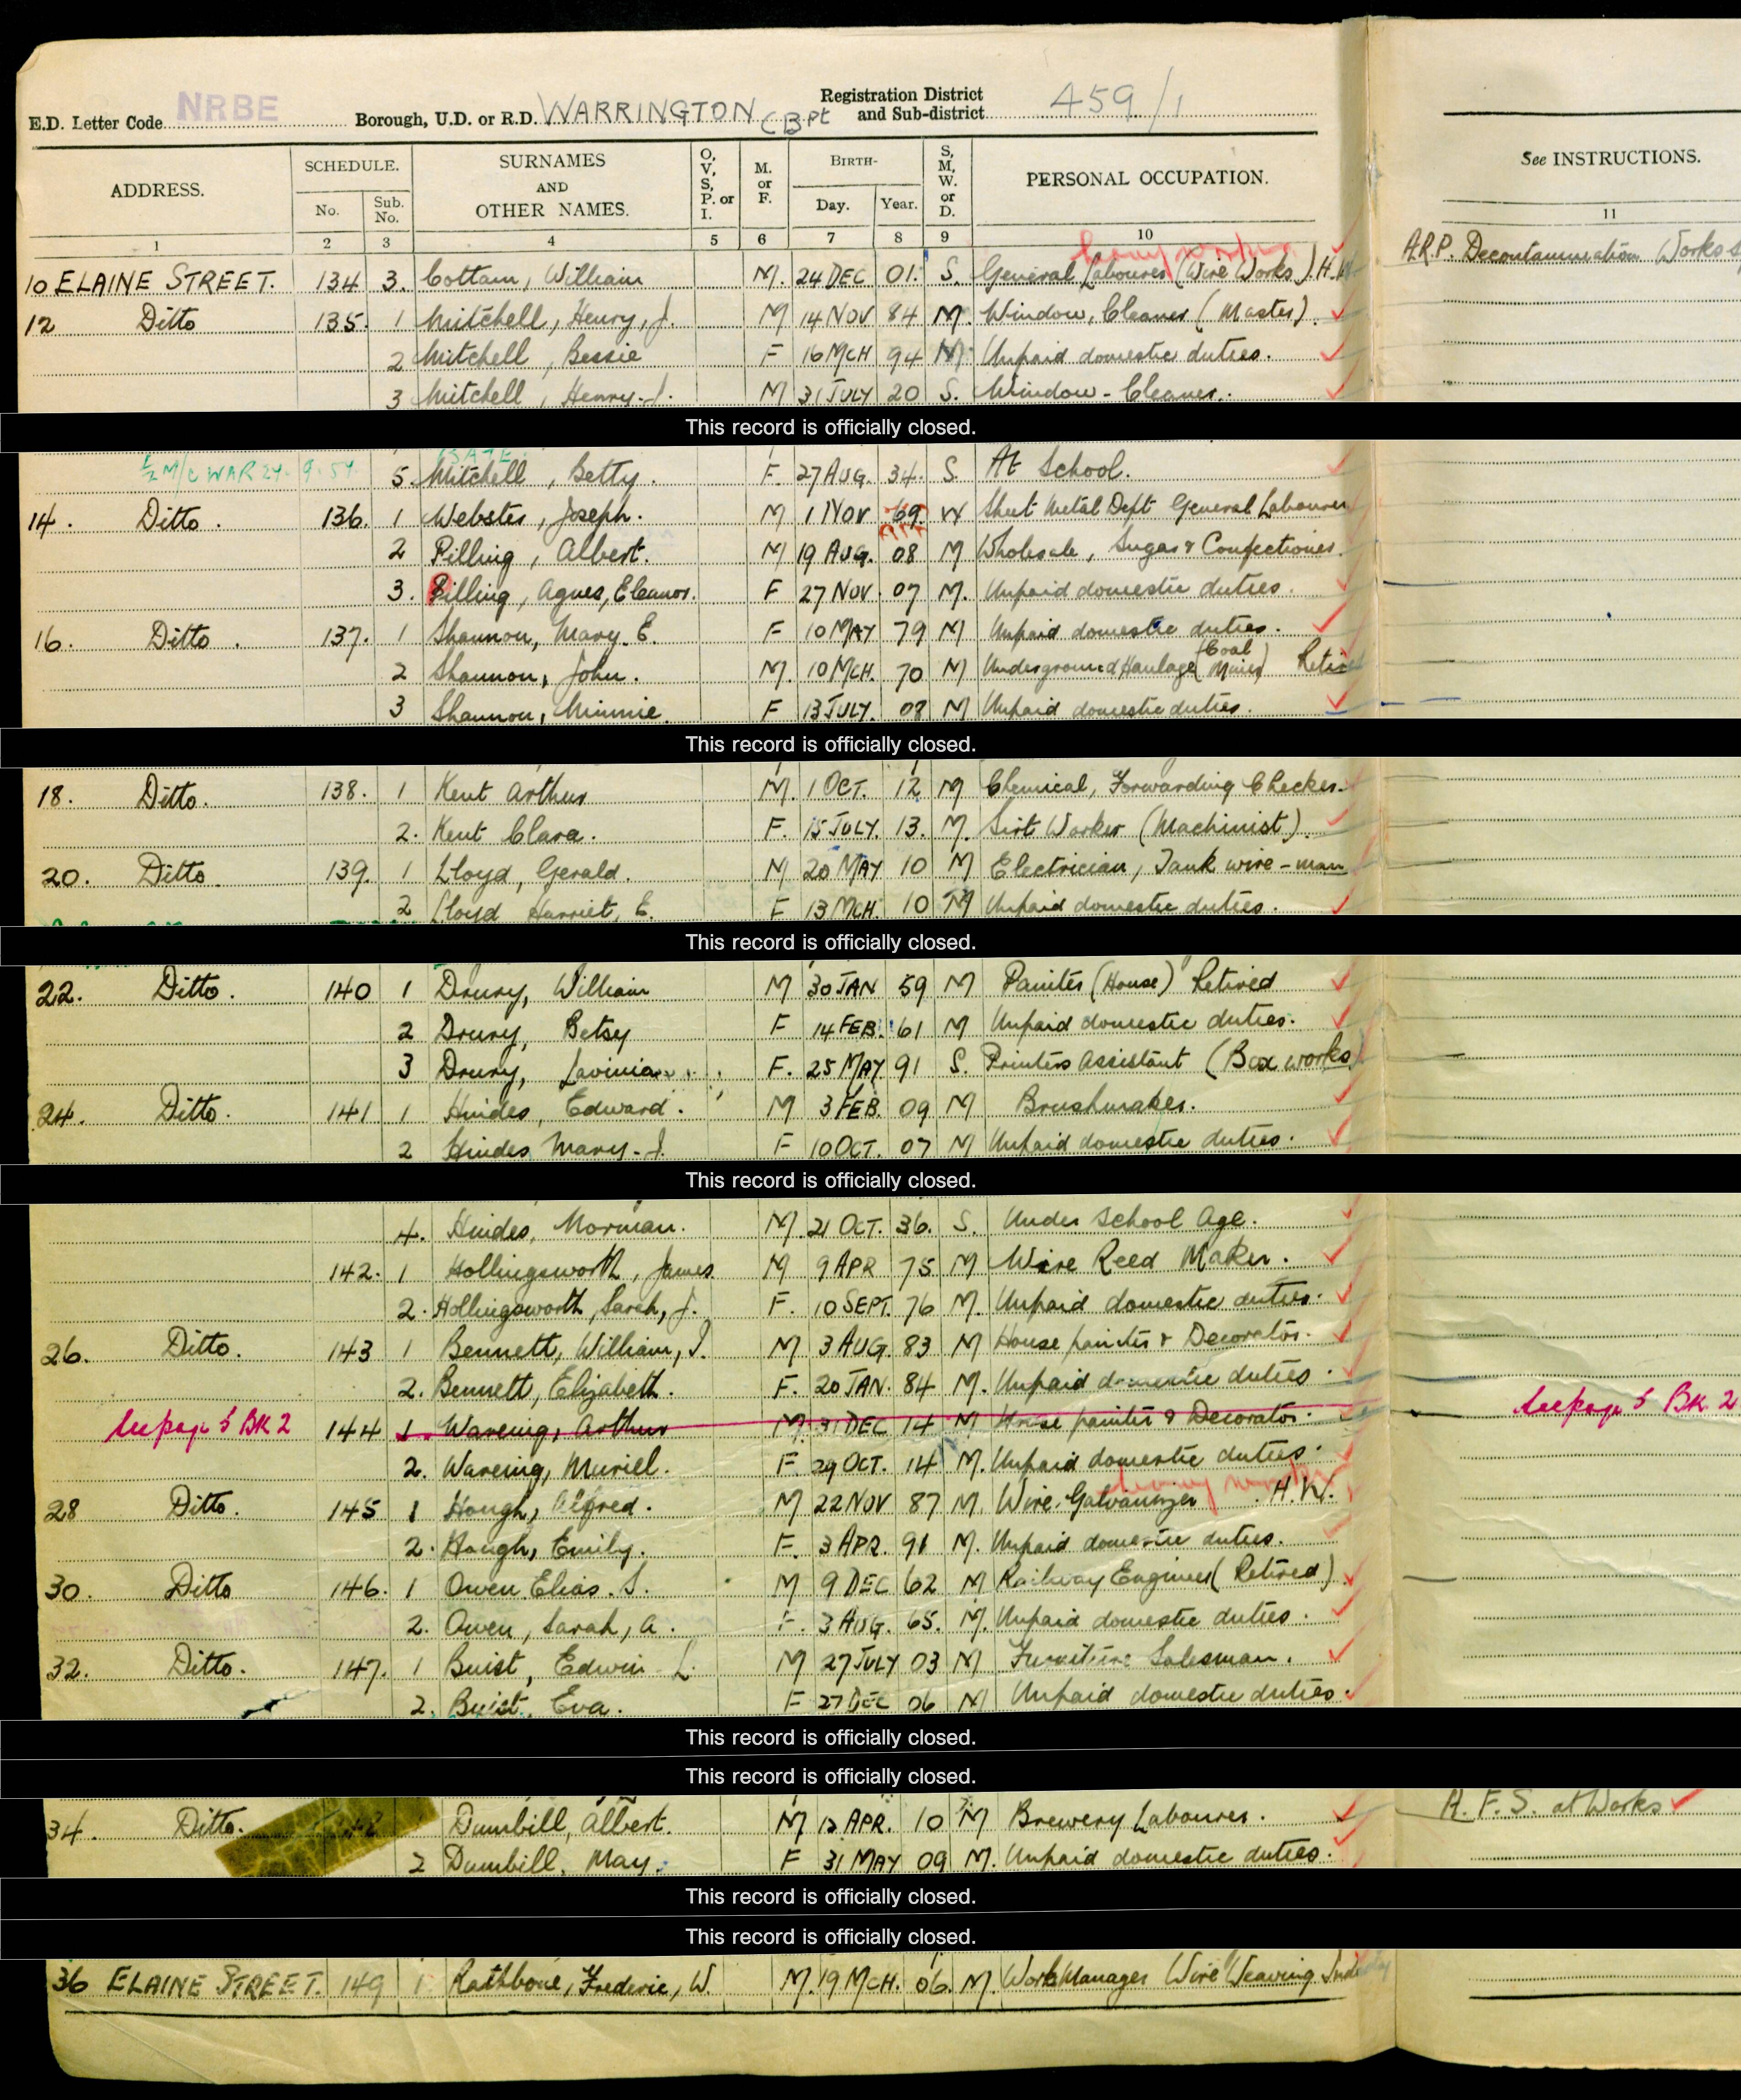 E.D. Letter Code NRBE Borough, U.D. or R.D. WARRINGTON C.B. Pt Registration District and Sub-district 459/1
ADDRESS. SCHEDULE. No. Sub. No. SURNAMES AND OTHER NAMES. O, V, S, P. or I. M. or F. BIRTH- Day. Year. S, M, W. or D. PERSONAL OCCUPATION. See INSTRUCTIONS.
1 2 3 4 5 6 7 8 9 10 11
heavy worker
10 ELAINE STREET. 134 3. Cottam, William M. 24 DEC 01. S. General Labourer (Wire Works). H.W. A.R.P. Decontamination Works
12 Ditto 135. 1 Mitchell, Henry, J. M 14 NOV 84 M. Window, Cleaner (Master).
2 Mitchell, Bessie F 16 MCH 94 M. Unpaid domestic duties.
3 Mitchell, Henry. J. M 31 JULY 20 S. Window - Cleaner.
This record is officially closed.
M/C WAR 24. 9. 54
5. Mitchell, Betty. F. 27 AUG. 34. S. At School.
14. Ditto. 136. 1 Webster, Joseph. M 1 NOV 69 W Sheet Metal Dept General Labourer
2 Pilling, Albert. M 19 AUG. 08 M Wholesale, Sugar & Confectioner.
3. Pilling, Agnes, Eleanor. F 27 NOV. 07 M. Unpaid domestic duties.
16. Ditto. 137. 1 Shannon, Mary. E. F 10 MAY 79 M Unpaid domestic duties.
2 Shannon, John. M. 10 MCH. 70 M Underground Haulage (Coal Mines) Retired
3 Shannon, Minnie. F 13 JULY. 08 M Unpaid domestic duties.
This record is officially closed.
18. Ditto. 138. 1 Kent Arthur M. 1 OCT. 12 M Chemical, Forwarding Checker.
2. Kent Clara. F. 15 JULY. 13. M. Sirt Worker (Machinist).
20. Ditto. 139. 1 Lloyd, Gerald. M 20 MAY 10 M Electrician, Tank wire-man
2 Lloyd Harriet, E. F 13 MCH. 10 M Unpaid domestic duties.
This record is officially closed.
22. Ditto. 140 1 Drury, William M 30 JAN 59 M Painter (House) Retired
2 Drury, Betsy F 14 FEB. 61 M Unpaid domestic duties.
3 Drury, Lavinia F. 25 MAY 91 S. Printers Assistant (Box works)
24. Ditto. 141 1 Hindes, Edward. M 3 FEB. 09 M Brushmaker.
2 Hindes Mary. J. F 10 OCT. 07 M Unpaid domestic duties.
This record is officially closed.
4. Hindes, Norman. M. 21 OCT. 36. S. Under School Age.
142. 1 Hollingsworth, James M 9 APR 75 M Wire Reed Maker.
2. Hollingsworth, Sarah, J. F. 10 SEPT. 76 M. Unpaid domestic duties.
26. Ditto. 143 1 Bennett, William, J. M 3 AUG. 83 M House painter & Decorator.
2. Bennett, Elizabeth. F. 20 JAN. 84 M. Unpaid domestic duties.
See page 5 BK 2 144 1. Wareing, Arthur M. 31 DEC 14 M House painter & Decorator. See page 5 BK. 2
2. Wareing, Muriel. F. 29 OCT. 14 M. Unpaid domestic duties.
heavy worker
28 Ditto. 145 1 Hough, Alfred. M 22 NOV 87 M. Wire Galvanizer. H.W.
2. Hough, Emily. F. 3 APR. 91 M. Unpaid domestic duties.
30. Ditto 146. 1 Owen Elias. S. M 9 DEC 62 M Railway Engineer (Retired).
2. Owen, Sarah, A. F. 3 AUG. 65. M. Unpaid domestic duties.
32. Ditto. 147. 1 Buist, Edwin L. M 27 JULY 03 M Furniture Salesman.
2. Buist, Eva. F 27 DEC 06 M Unpaid domestic duties.
This record is officially closed.
This record is officially closed.
34. Ditto. Dumbill, Albert. M 12 APR. 10 M Brewery Labourer. A.F.S. at Works
2 Dumbill, May. F 31 MAY 09 M. Unpaid domestic duties.
This record is officially closed.
This record is officially closed.
36 ELAINE STREET. 149 1 Rathbone, Frederic, W. M. 19 MCH. 06. M. Work Manager Wire Weaving